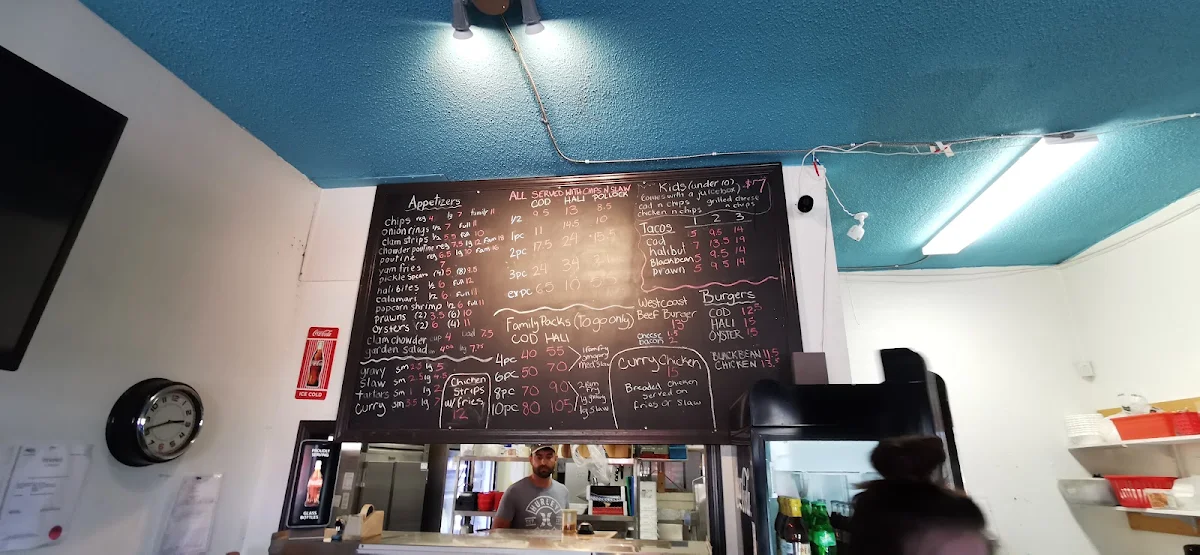 Appetizers
chips reg 4 lg 7 family 11
onion rings 1/2 7 full 11
clam strips 1/2 5.5 full 10
chowder poutine reg 7.5 lg 12 fam 18
poutine reg 6.5 lg 10 fam 16
yam fries 7
pickle spears (4) 5 (8) 9.5
halibites 1/2 6 full 12
calamari 1/2 6 full 11
popcorn shrimp 1/2 6 full 11
prawns (2) 3.5 (6) 10
oysters (2) 6 (4) 11
clam chowder cup 4 7.5
garden salad lg
gravy sm 2.5 lg 5
slaw sm 2.5 lg 4.5
tartars sm 1 lg 2
curry sm 3.5 lg 7
Chicken
strips
w/fries
12
ALL SERVED WITH CHIPS N SLAW
COD HALI POLLOCK
1/2 9.5 13 8.5
1pc 11 14.5 10
2pc 17.5 24 15.5
3pc 24 34
ex pc 6.5 10
Family Packs (To go only)
COD HALI
4pc 40 55
6pc 50 70
8pc 70 90
10pc 80 105
1 fam fry
med slaw
2 fam
fry
lg gravy
lg slaw
Kids (under 10) $7
comes with a juicebox
cod n chips grilled cheese
chicken n chips n chips
Tacos 1 2 3
cod 5 9.5 14
halibut 7 13.5 19
Blackbean 5 9.5 14
prawn 5 9.5 14
Westcoast
Beef Burger
13
cheese 1.5
bacon 2
Burgers
COD 12.5
HALI 15
OYSTER 15
BLACKBEAN 11.5
CHICKEN 13.5
Curry Chicken
15
Breaded chicken
served on
fries or slaw
Coca-Cola
ICE COLD
PROUDLY
SERVING
GLASS
BOTTLES
HURLEY